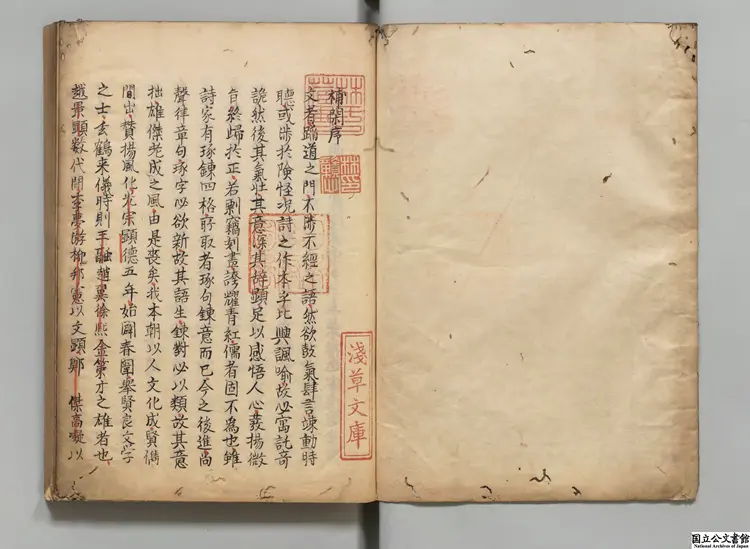 淺草文庫
補閑序
文者蹈道之門不涉不經之語然欲鼓氣肆言竦動時
聽或涉於險怪況詩之作本乎比興諷喻故必寓託奇
詭然後其氣壯其意深其辭顯足以感悟人心發揚微
旨終歸於正若剽竊刻畫誇耀青紅儒者固不為也雖
詩家有琢鍊四格所取者琢句鍊意而已今之後進尚
聲律章句琢字必欲新故其語生鍊對必以類故其意
拙雄傑老成之風由是喪矣我本朝以人文化成賢儁
間出贊揚風化光宗顯德五年始闢春闈舉賢良文学
之士玄鶴来儀時則王融趙翼徐熙金策才之雄者也
越景顯数代間李夢游柳邦憲以文顯鄭 傑高凝以
国立公文書館
National Archives of Japan